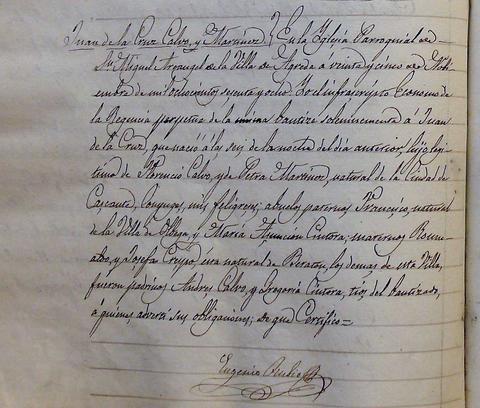 Juan de la Cruz Calvo, y Martinez. } En la Iglesia Parroquial de
Sn. Miguel Arcangel de la Villa de Agreda a veinte y cinco de Nobi-
embre de mil ochocientos sesenta y ocho. Yo el infrascripto Economo de
la Regencia perpetua de la misma bautize solemnemente á Juan
de la Cruz, que nació á las seis de la noche del dia anterior, hijo legi-
timo de Florencio Calvo, y de Petra Martinez, natural de la Ciudad de
Cascante, Conyuges, mis feligreses; abuelos paternos Francisco, natural
de la Villa de, y Maria Asuncion Cintora; maternos Romu-
aldo, y Josefa Crespo, esta natural de Beraton, los demas de esta Villa,
fueron padrinos Andres Calvo y Gregoria Cintora, tios del bautizado,
á quienes advertí sus obligaciones; de que Certifico=
Eugenio